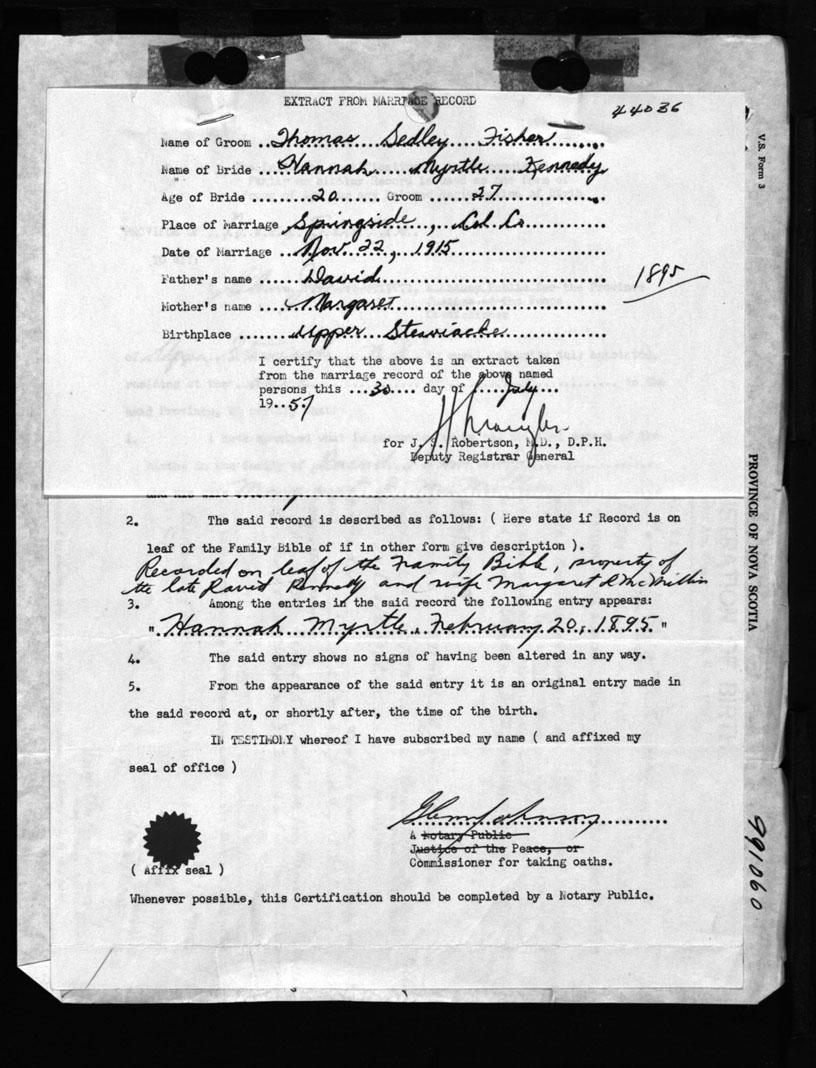 EXTRACT FROM MARRIAGE RECORD
44036
Name of Groom ..Thomas Sedley Fisher
Name of Bride ..Hannah Myrtle Kennedy
Age of Bride ....20.... Groom ....27....
Place of Marriage Springside, Col. Co.
Date of Marriage ..Nov. 22, 1915
Father's name ....David
Mother's name ....Margaret
1895
Birthplace ....Upper Stewiacke
I certify that the above is an extract taken
from the marriage record of the above named
persons this ...30... day of ...July...
19..57
for J. S. Robertson, M.D., D.P.H.
Deputy Registrar General
and his wife
2. The said record is described as follows: ( Here state if Record is on
leaf of the Family Bible of if in other form give description ).
Recorded on leaf of the Family Bible, property of
the late David Kennedy and wife Margaret
3. Among the entries in the said record the following entry appears:
"Hannah Myrtle, February 20, 1895."
4. The said entry shows no signs of having been altered in any way.
5. From the appearance of the said entry it is an original entry made in
the said record at, or shortly after, the time of the birth.
IN TESTIMONY whereof I have subscribed my name ( and affixed my
seal of office )
A Notary Public
Justice of the Peace, or
Commissioner for taking oaths.
( Affix seal )
Whenever possible, this Certification should be completed by a Notary Public.
V.S. Form 3
PROVINCE OF NOVA SCOTIA
991060